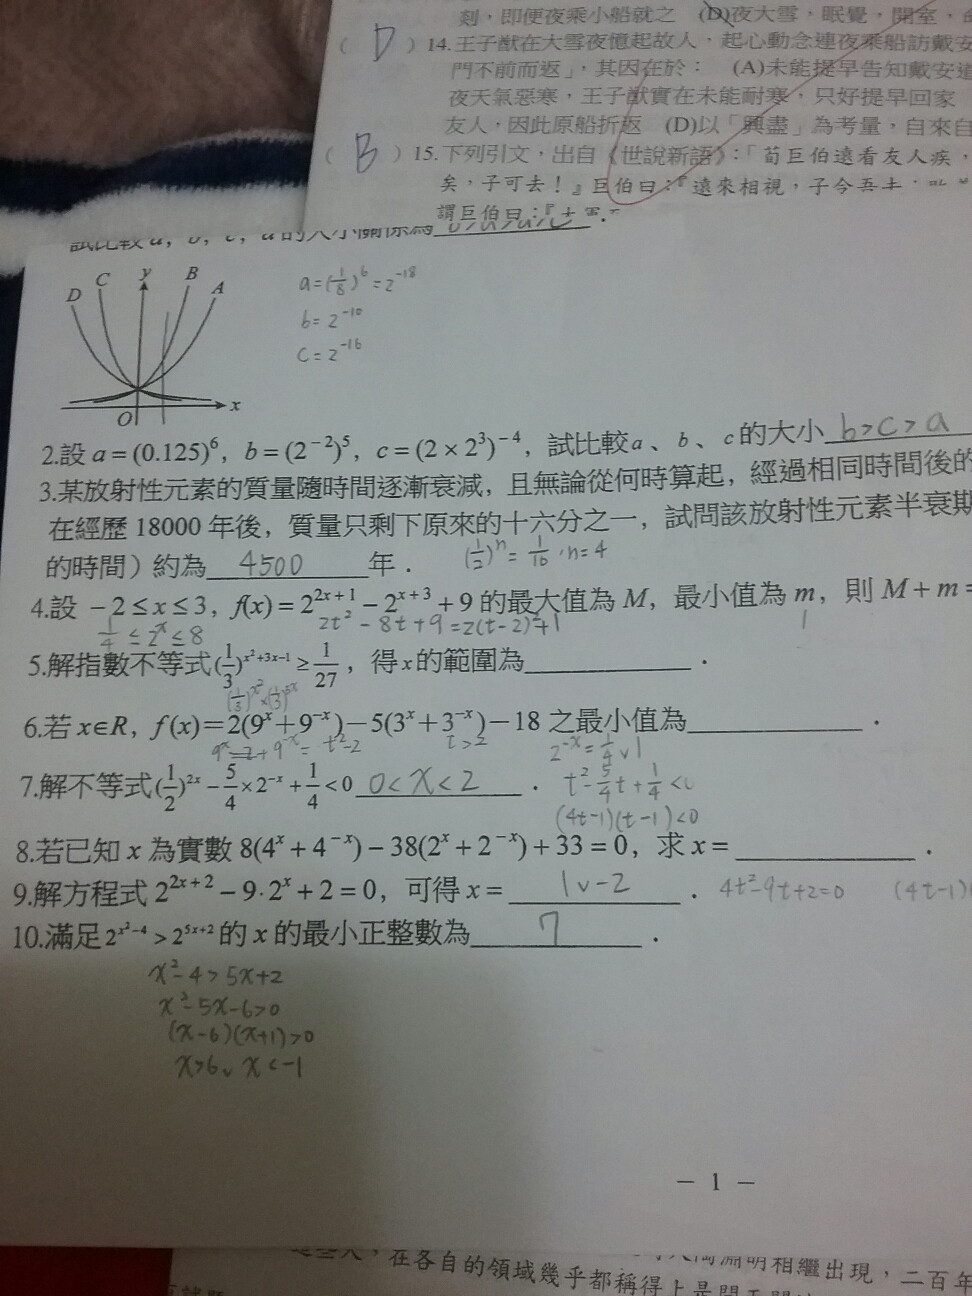 刻，即便夜乘小船就之　(D)夜大雪，眠覺，開室，
( D ) 14.王子猷在大雪夜憶起故人，起心動念連夜乘船訪戴安
門不前而返」，其因在於：　(A)未能提早告知戴安道
夜天氣惡寒，王子猷實在未能耐寒，只好提早回家
友人，因此原船折返　(D)以「興盡」為考量，自來自
( B ) 15.下列引文，出自《世說新語》：「荀巨伯遠看友人疾，
矣，子可去！』巨伯曰：『遠來相視，子今吾
謂巨伯曰：『
試比較 a，b，c，d 的大小關係為
D C y B A
O x
a=(1/8)^6=2^-18
b=2^-10
c=2^-16
2.設 a = (0.125)^6，b = (2^-2)^5，c = (2 × 2^3)^-4，試比較 a、b、c 的大小 b>c>a
3.某放射性元素的質量隨時間逐漸衰減，且無論從何時算起，經過相同時間後的
在經歷 18000 年後，質量只剩下原來的十六分之一，試問該放射性元素半衰期
的時間）約為 4500 年．
(1/2)^n = 1/16 , n=4
4.設 −2 ≤ x ≤ 3，f(x) = 2^(2x+1) − 2^(x+3) + 9 的最大值為 M，最小值為 m，則 M + m =
1/4 ≤ 2^x ≤ 8
2t^2 − 8t + 9 = 2(t−2)^2+1
1
5.解指數不等式 (1/3)^(x^2+3x−1) ≥ 1/27，得 x 的範圍為____．
(1/3)^x^2 × (1/3)^3x
6.若 x∈R，f(x) = 2(9^x + 9^-x) − 5(3^x + 3^-x) − 18 之最小值為____．
9^x − 2 + 9^-x = t^2−2
t>2
2^-x = 1/4 ∨ 1
7.解不等式 (1/2)^2x − 5/4 × 2^-x + 1/4 < 0 0<x<2 ．
t^2 − 5/4 t + 1/4 <0
(4t−1)(t−1)<0
8.若已知 x 為實數 8(4^x + 4^-x) − 38(2^x + 2^-x) + 33 = 0，求 x = ____．
9.解方程式 2^(2x+2) − 9·2^x + 2 = 0，可得 x = 1∨−2 ．
4t^2−9t+2=0 (4t−1)(
10.滿足 2^(x^2−4) > 2^(5x+2) 的 x 的最小正整數為 7 ．
x^2−4>5x+2
x^2−5x−6>0
(x−6)(x+1)>0
x>6 ∨ x<−1
− 1 −
在各自的領域幾乎都稱得上是
陶淵明相繼出現，二百年